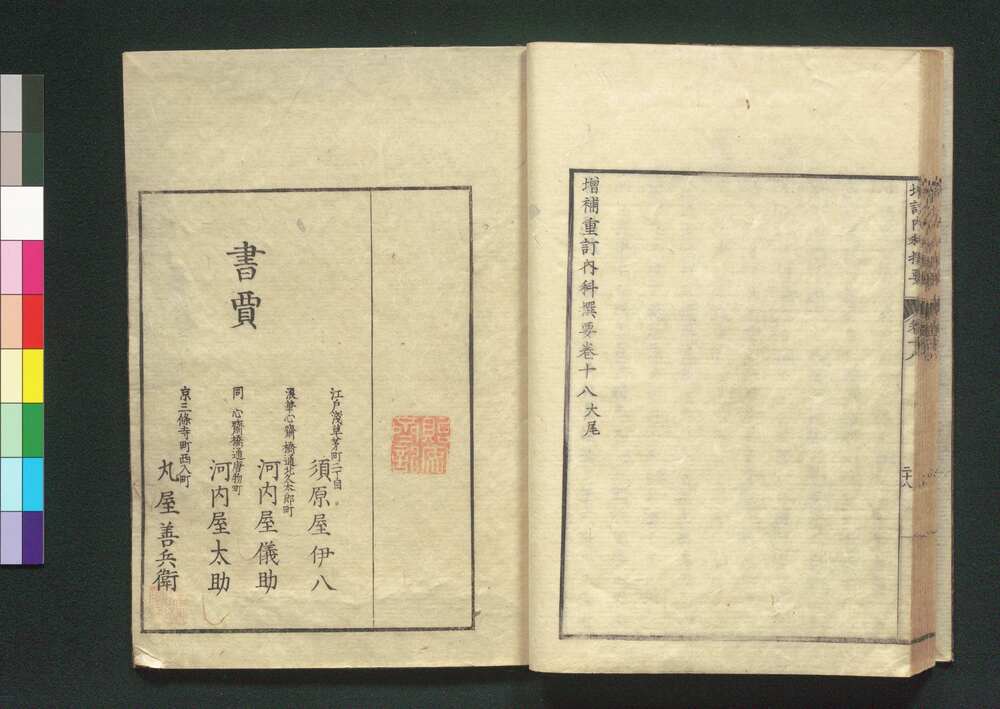 增補重訂內科撰要卷十八大尾
二十八
江戶淺草茅町二丁目
須原屋伊八
浪華心齋橋通北久太郎町
河內屋儀助
同心齋橋通唐物町
河內屋太助
京三條寺町西入町
丸屋善兵衛
書賈